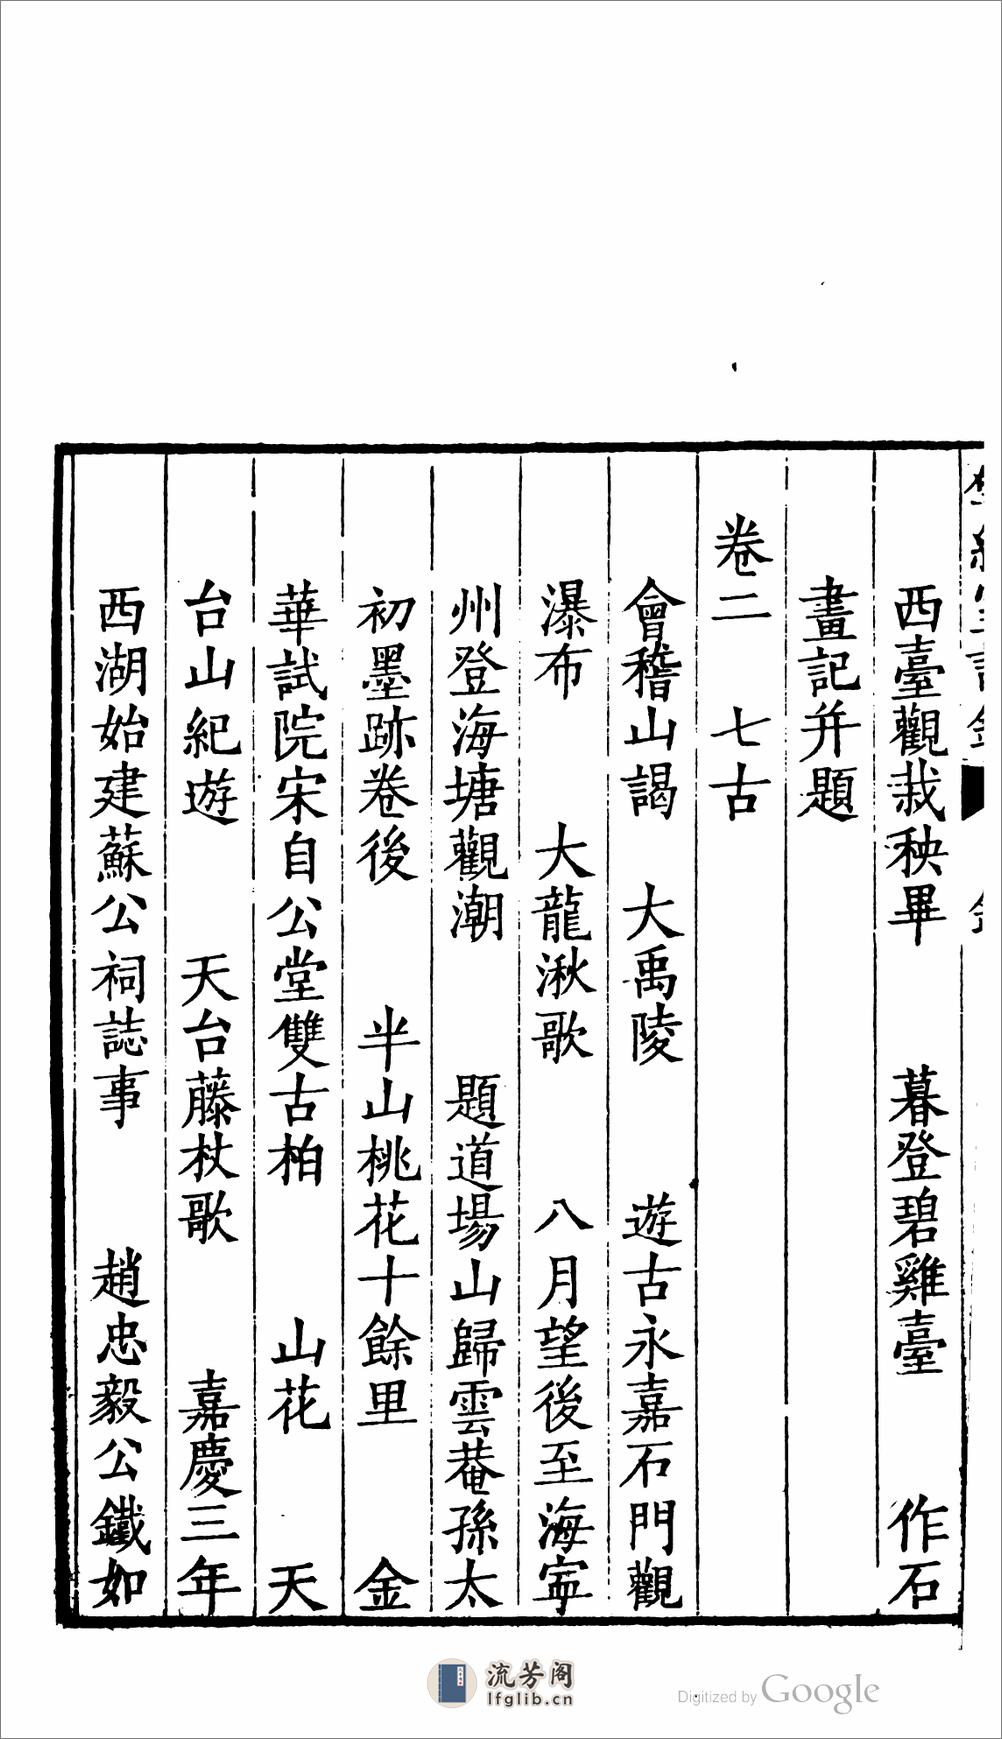 西臺觀栽秧畢　暮登碧雞臺　作石
畫記并題
卷二　七古
會稽山謁　大禹陵　遊古永嘉石門觀
瀑布　大龍湫歌　八月望後至海寍
州登海塘觀潮　題道場山歸雲菴孫太
初墨跡卷後　半山桃花十餘里　金
華試院宋自公堂雙古柏　山花　天
台山紀遊　天台藤杖歌　嘉慶三年
西湖始建蘇公祠誌事　趙忠毅公鐵如
流芳阁
lfglib.cn
Digitized by Google